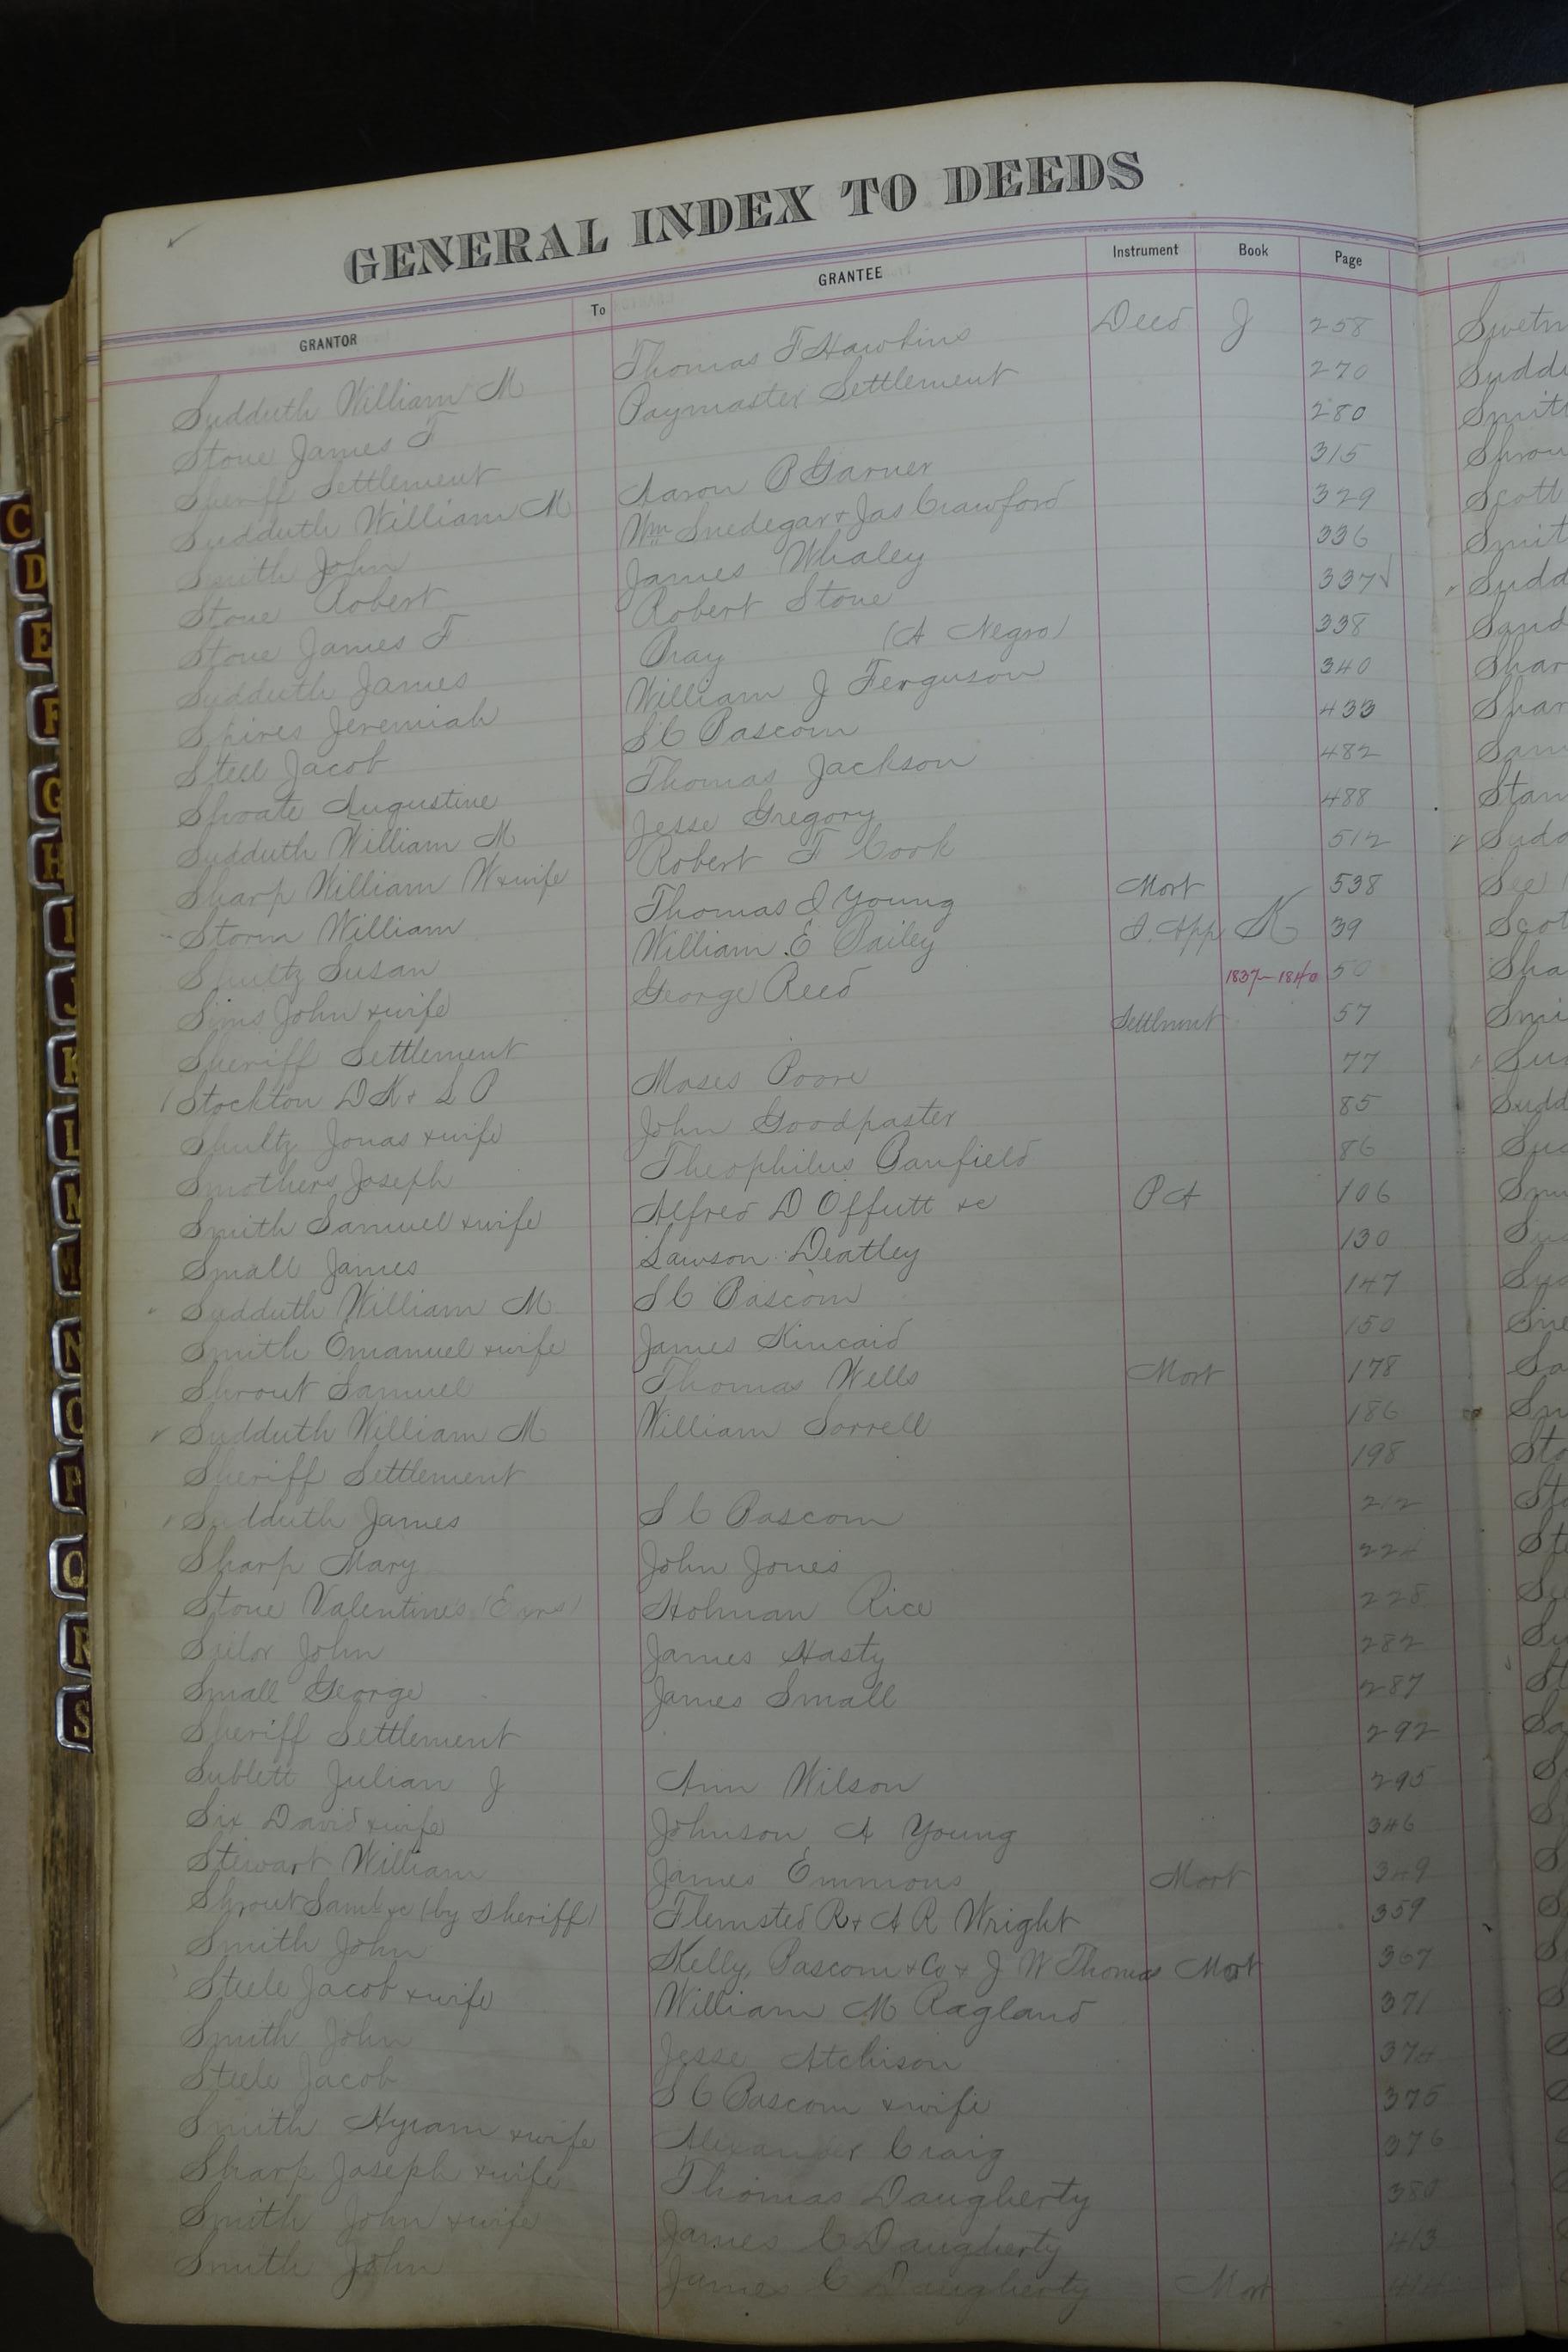 GENERAL INDEX TO DEEDS
GRANTOR To GRANTEE Instrument Book Page
Sudduth William M Thomas F Hawkins Deed J 258
Stone James F Paymaster Settlement 270
Sheriff Settlement 280
Sudduth William M Aaron P Garner 315
Smith John Wm Snedegar & Jas Crawford 329
Stone Robert James Whaley 336
Stone James F Robert Stone 337
Sudduth James Pray (A Negro) 338
Spires Jeremiah William J Ferguson 340
Steel Jacob S C Bascom 433
Shoate Augustine Thomas Jackson 482
Sudduth William M Jesse Gregory 488
Sharp William W & wife Robert F Cook 512
Storm William Thomas I Young Mort 538
Shultz Susan William E Bailey I. App K 39
Sims John & wife George Reed 1837-1840 50
Sheriff Settlement Settlment 57
Stockton D K & L P Moses Poore 77
Shultz Jonas & wife John Goodpaster 85
Smothers Joseph Theophilus Banfield 86
Smith Samuel & wife Alfred D Offutt &c P A 106
Small James Lawson Deatley 130
Sudduth William M S C Bascom 147
Smith Emanuel & wife James Kincaid 150
Shrout Samuel Thomas Wells Mort 178
Sudduth William M William Sorrell 186
Sheriff Settlement 198
Sudduth James S C Bascom 212
Sharp Mary John Jones
Stone Valentines Holman Rice 228
Sailor John James Hasty 282
Small George James Small 287
Sheriff Settlement 292
Sublett Julian J Ann Wilson 295
Six David & wife Johnson A Young 346
Stewart William James Emmons Mort 349
Shrout Saml &c (by Sheriff) Flemsted R & A R Wright 359
Smith John Kelly, Bascom & Co & J W Thomas Mort 367
Steele Jacob & wife William M Ragland 371
Smith John Jesse Atchison 374
Steele Jacob S C Bascom & wife 375
Smith Hyram & wife Alexander Craig 376
Sharp Joseph & wife Thomas Daugherty 380
Smith John & wife James C Daugherty 413
Smith John James C Daugherty Mort
C
D
E
F
G
H
I
J
K
L
M
N
O
P
Q
R
S